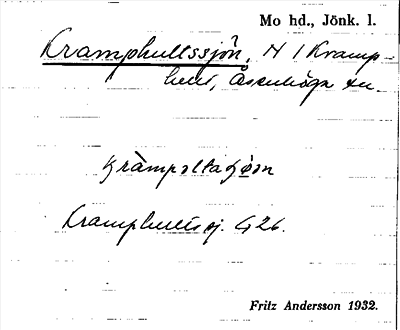 Mo hd., Jönk. l.
Kramphultssjön, N I Kramp-
hult, Åsenhöga sn.
kràmpəltaʃøən
Kramphultssj. G26.
Fritz Andersson 1932.